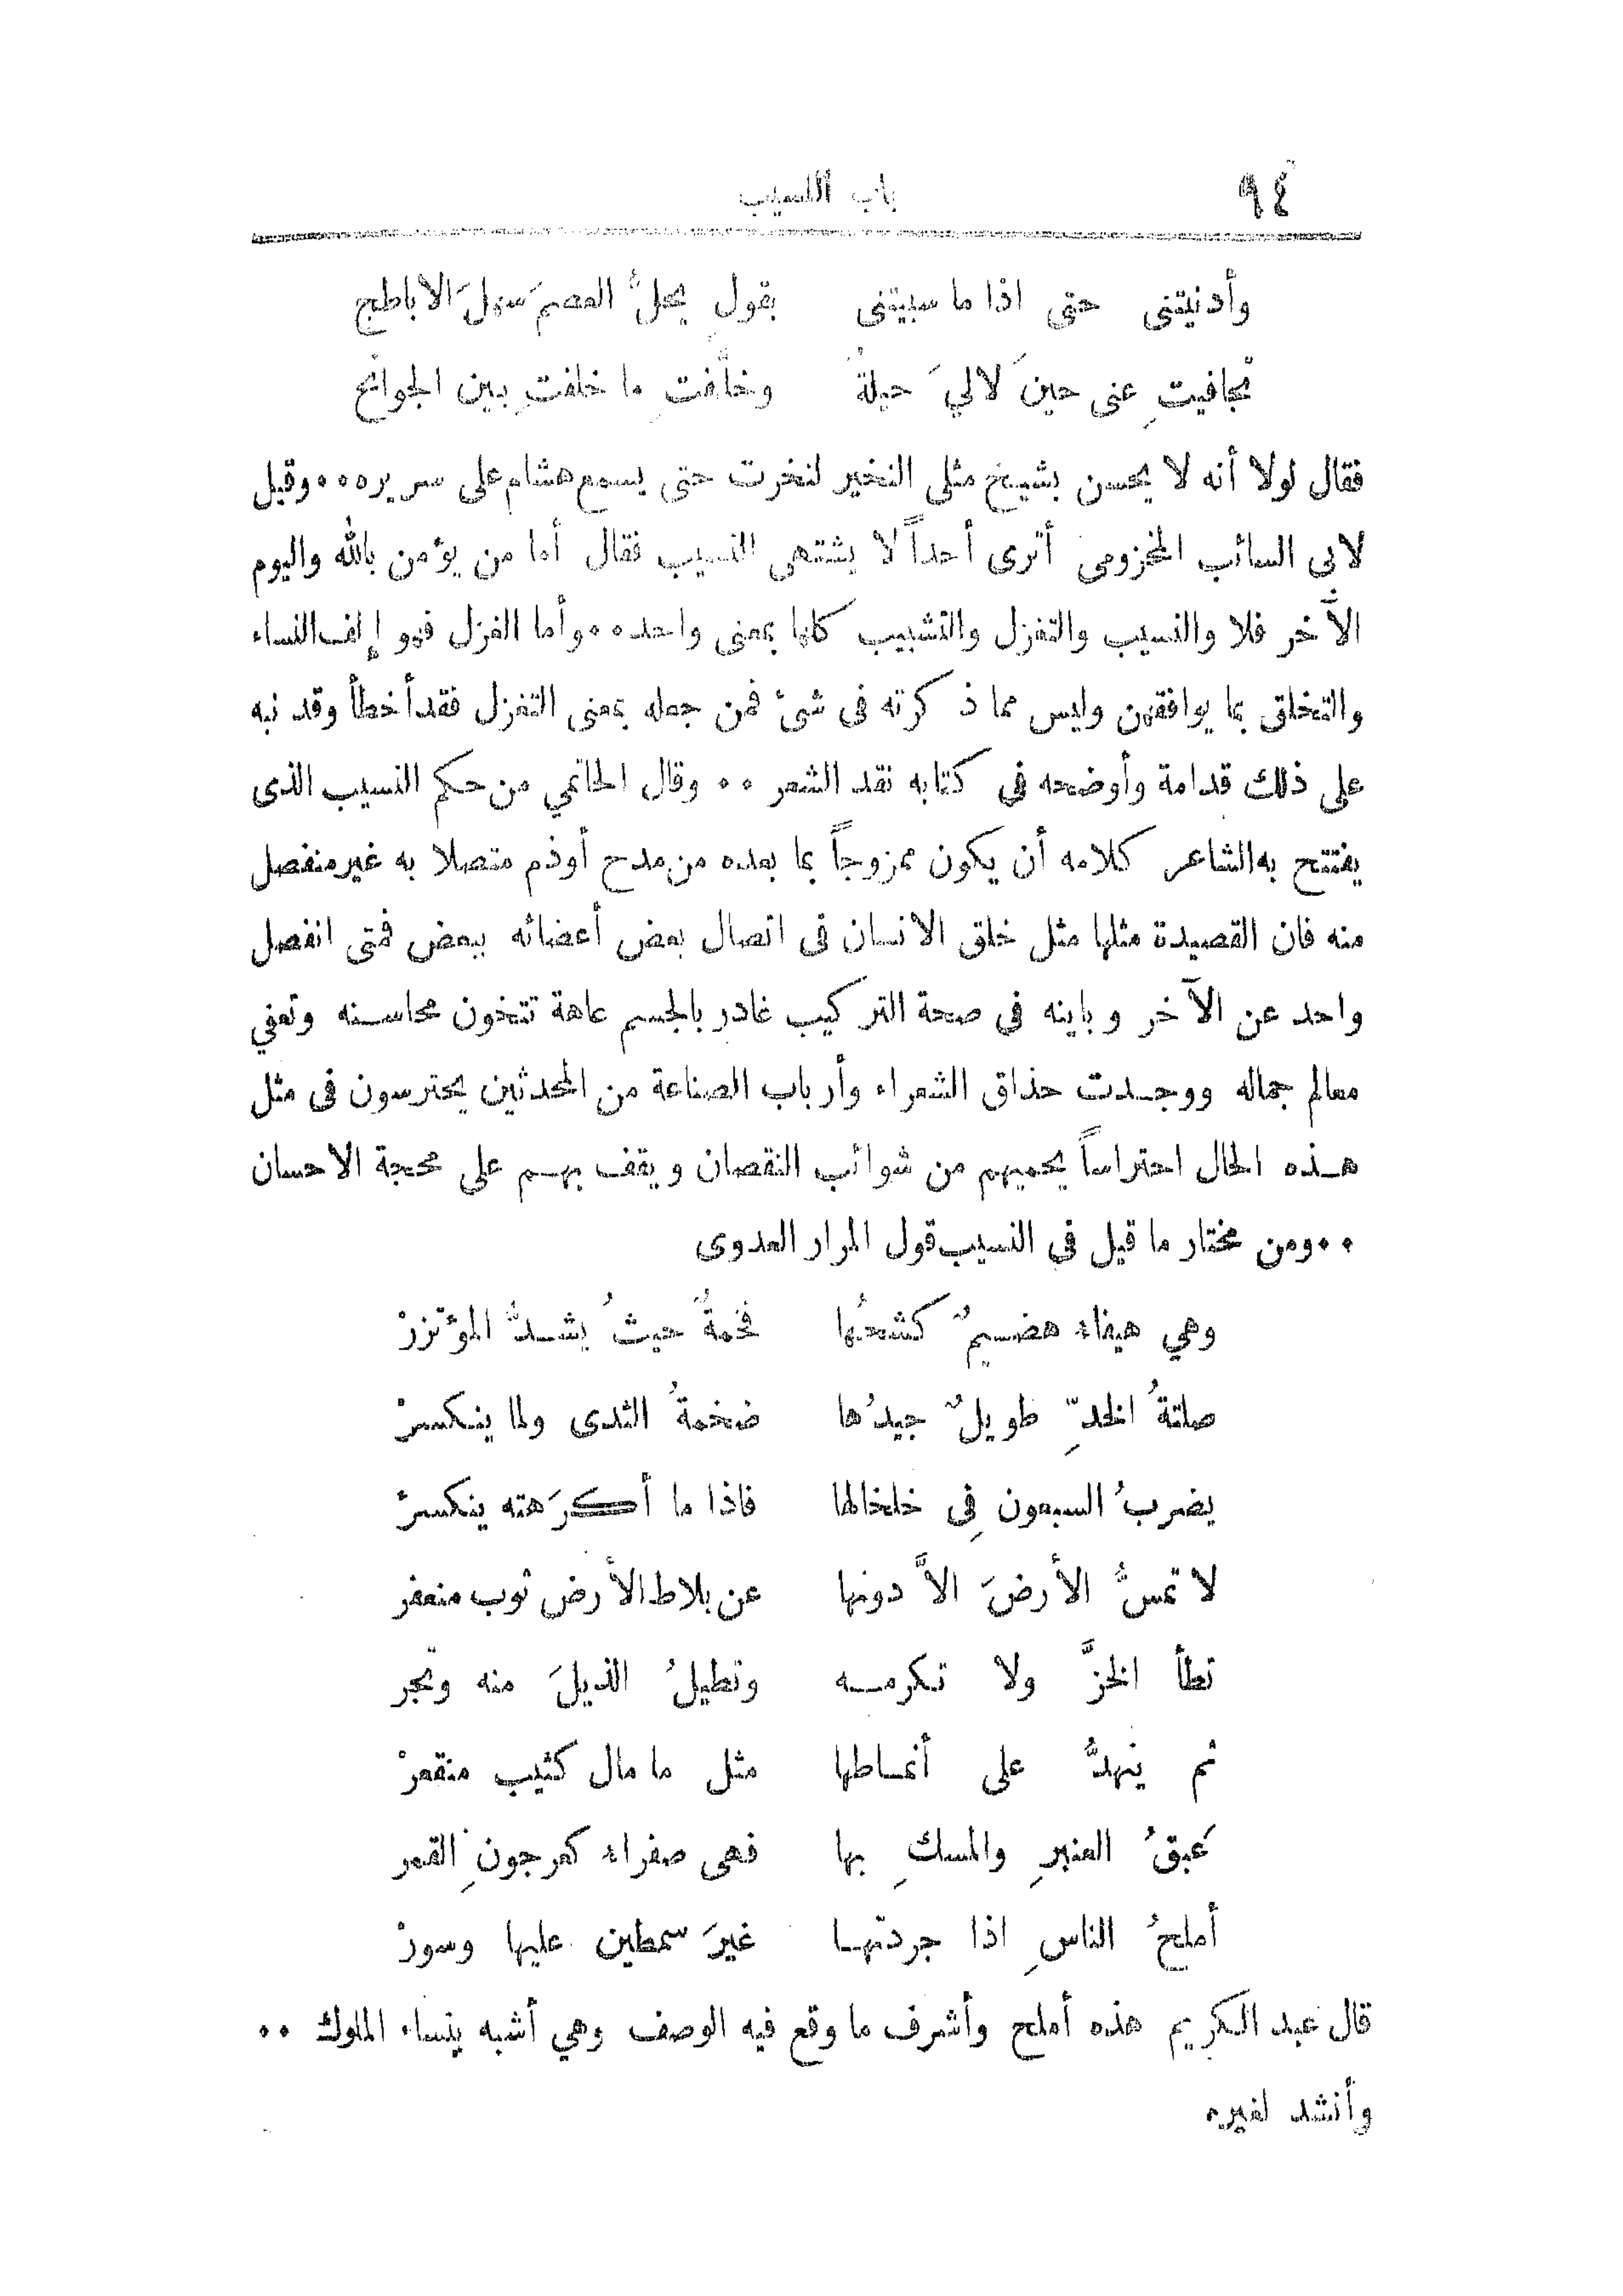 ٩٤
باب النسيب
وأدنيتنى حتى اذا ما سبيتنى بقول يحلُّ العصمَ سهلَ الاباطح
تجافيتِ عنى حينَ لالىَ حيلةٌ وخلَّفتِ ما خلفتِ بين الجوانح
فقال لولا أنه لا يحسن بشيخ مثلى النخير لنخرت حتى يسمع هشام على سريره ٠٠ وقيل
لابى السائب المخزومى أترى أحداً لا يشتهى النسيب فقال أما من يؤمن بالله واليوم
الآخر فلا والنسيب والتغزل والتشبيب كلها بمعنى واحد ٠٠ وأما الغزل فهو إلف النساء
والتخلق بما يوافقهن وليس مما ذكرته فى شئ فمن جعله بمعنى التغزل فقد أخطأ وقد نبه
على ذلك قدامة وأوضحه فى كتابه نقد الشعر ٠٠ وقال الحاتمي من حكم النسيب الذى
يفتتح به الشاعر كلامه أن يكون ممزوجاً بما بعده من مدح أوذم متصلا به غير منفصل
منه فان القصيدة مثلها مثل خلق الانسان فى اتصال بعض أعضائه ببعض فمتى انفصل
واحد عن الآخر وباينه فى صحة التركيب غادر بالجسم عاهة تتخون محاسنه وتعفي
معالم جماله ووجدت حذاق الشعراء وأرباب الصناعة من المحدثين يحترسون فى مثل
هذه الحال احتراساً يحميهم من شوائب النقصان ويقف بهم على محجة الاحسان
٠٠ ومن مختار ما قيل فى النسيب قول المرار العدوى
وهي هيفاء هضيمٌ كشحُها فخمةٌ حيثُ يشدُّ المؤتزرْ
صلتةُ الخدِّ طويلٌ جيدُها ضخمةُ الثدى ولما ينكسرْ
يضربُ السبعون فِى خلخالها فاذا ما أكرَهته ينكسرْ
لا تمسُّ الأرضَ الاَّ دونها عن بلاط الأرض ثوب منعفر
تطأ الخزَّ ولا تكرمه وتطيلُ الذيلَ منه وتجر
ثم ينهدُّ على أنماطها مثل ما مال كثيب منقعرْ
عَبقُ العنبرِ والمسكِ بها فهى صفراء كعرجونِ القمر
أملحُ الناسِ اذا جردتها غيرَ سمطين عليها وسورْ
قال عبد الكريم هذه أملح وأشرف ما وقع فيه الوصف وهي أشبه بنساء الملوك ٠٠
وأنشد لغيره